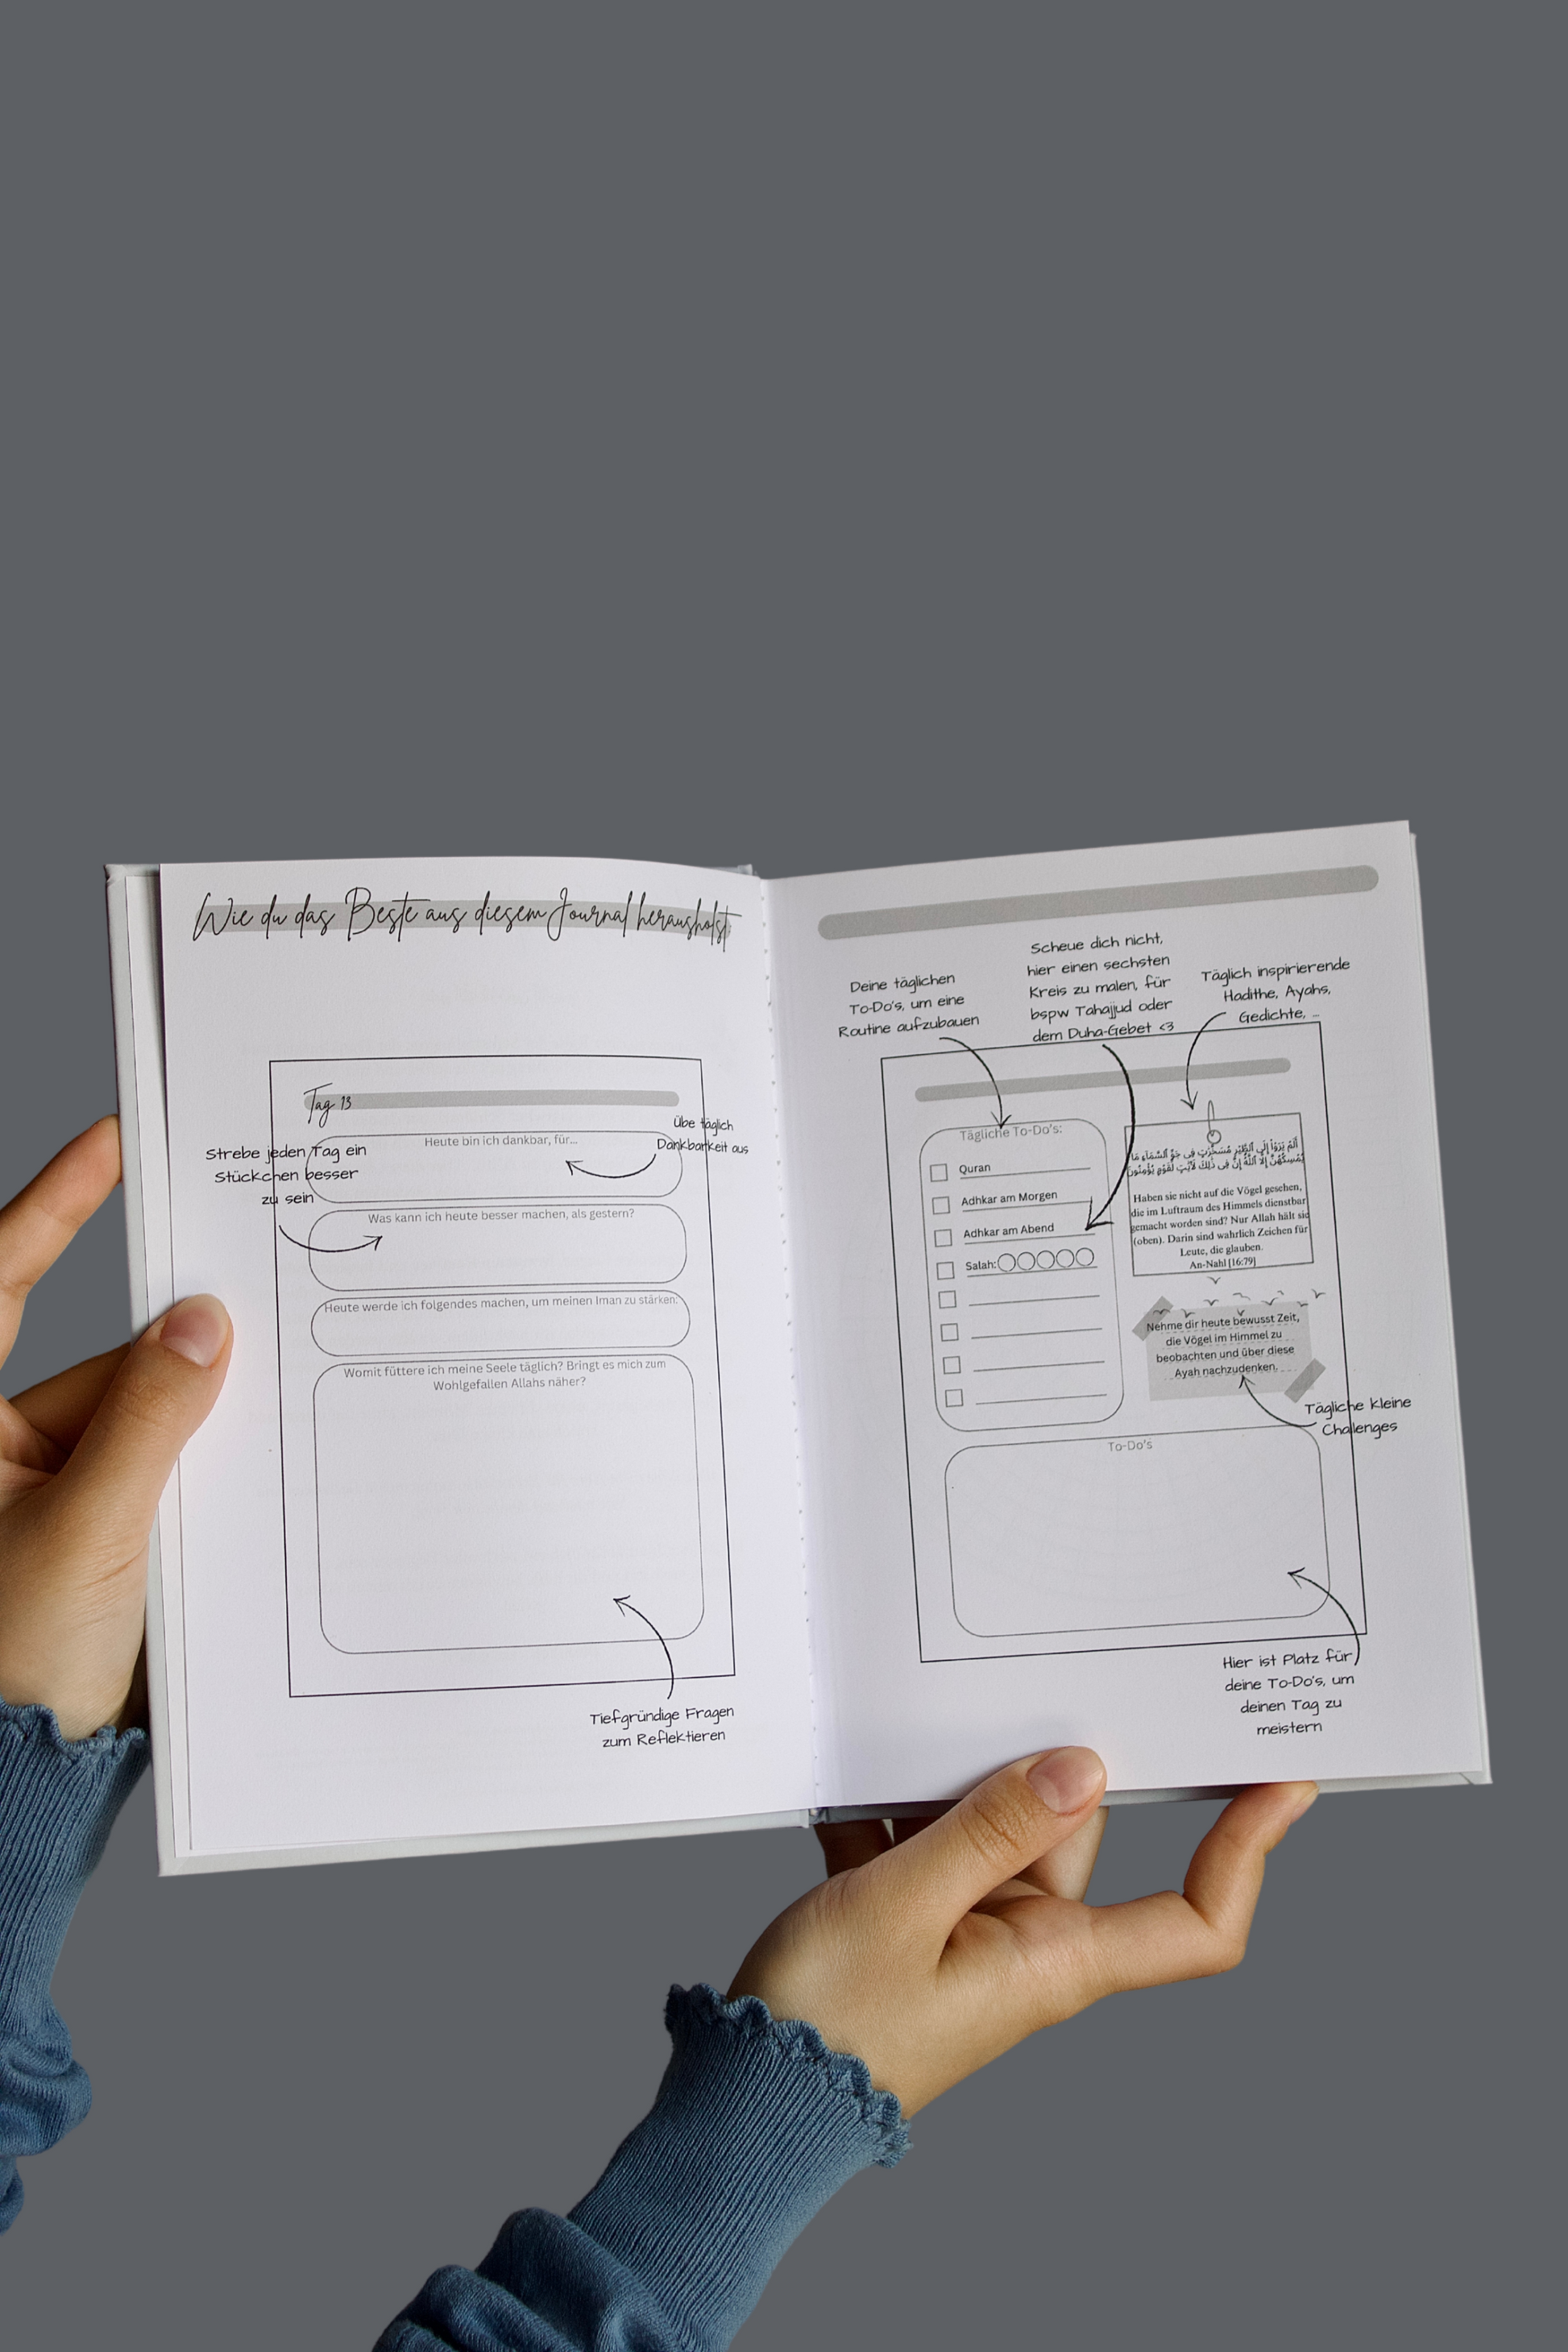 Wie du das Beste aus diesem Journal herausholst
Tag 13
Übe täglich
Dankbarkeit aus
Heute bin ich dankbar, für...
Strebe jeden Tag ein
Stückchen besser
zu sein
Was kann ich heute besser machen, als gestern?
Heute werde ich folgendes machen, um meinen Iman zu stärken:
Womit füttere ich meine Seele täglich? Bringt es mich zum
Wohlgefallen Allahs näher?
Tiefgründige Fragen
zum Reflektieren
Deine täglichen
To-Do's, um eine
Routine aufzubauen
Scheue dich nicht,
hier einen sechsten
Kreis zu malen, für
bspw Tahajjud oder
dem Duha-Gebet <3
Täglich inspirierende
Hadithe, Ayahs,
Gedichte, ...
Tägliche To-Do's:
Quran
Adhkar am Morgen
Adhkar am Abend
Salah:
أَلَمْ يَرَوْا۟ إِلَى ٱلطَّيْرِ مُسَخَّرَٰتٍ فِى جَوِّ ٱلسَّمَآءِ مَا
يُمْسِكُهُنَّ إِلَّا ٱللَّهُ إِنَّ فِى ذَٰلِكَ لَـَٔايَٰتٍ لِّقَوْمٍ يُؤْمِنُونَ
Haben sie nicht auf die Vögel gesehen,
die im Luftraum des Himmels dienstbar
gemacht worden sind? Nur Allah hält sie
(oben). Darin sind wahrlich Zeichen für
Leute, die glauben.
An-Nahl [16:79]
Nehme dir heute bewusst Zeit,
die Vögel im Himmel zu
beobachten und über diese
Ayah nachzudenken.
Tägliche kleine
Challenges
To-Do's
Hier ist Platz für
deine To-Do's, um
deinen Tag zu
meistern